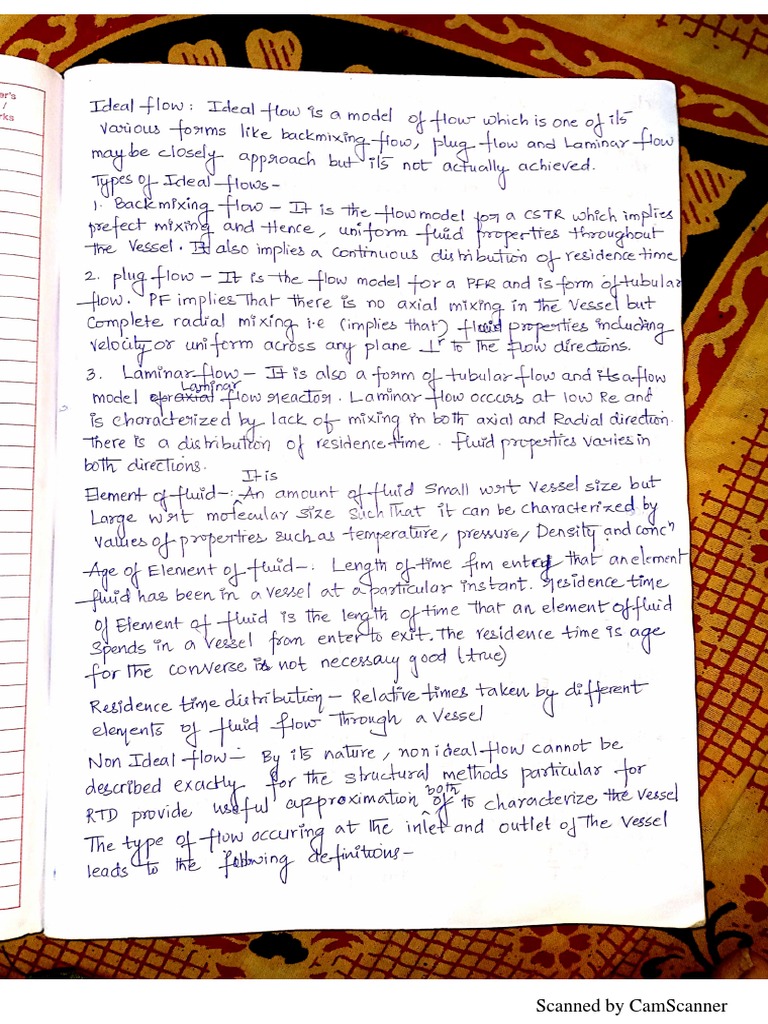 er's
/
rks
Ideal flow: Ideal flow is a model of flow which is one of its
various forms like backmixing flow, plug flow and Laminar flow
may be closely approach but its not actually achieved.
Types of Ideal flows-
1. Backmixing flow - It is the flow model for a CSTR which implies
prefect mixing and Hence, uniform fluid properties throughout
the Vessel. It also implies a continuous distribution of residence time
2. plug flow - It is the flow model for a PFR and is form of tubular
flow. PF implies that there is no axial mixing in the vessel but
Complete radial mixing i.e (implies that) fluid properties including
velocity or uniform across any plane ⊥r to the flow directions.
3. Laminar flow - It is also a form of tubular flow and its a flow
Laminar
model of axial flow reactor. Laminar flow occurs at low Re and
is characterized by lack of mixing in both axial and Radial direction.
There is a distribution of residence time. fluid properties varies in
both directions.
It is
Element of fluid-: An amount of fluid small wrt vessel size but
Large wrt molecular size such that it can be characterized by
values of properties such as temperature, pressure, Density and concn
Age of Element of fluid-: Length of time that an element
fluid has been in a vessel at a particular instant. residence time
of Element of fluid is the length of time that an element of fluid
spends in a vessel from enter to exit. The residence time is age
for the converse is not necessary good (true)
Residence time distribution - Relative times taken by different
elements of fluid flow through a vessel
Non Ideal flow - By its nature, non ideal flow cannot be
described exactly for the structural methods particular for
both
RTD provide useful approximation of to characterize the vessel
The type of flow occuring at the inlet and outlet of the vessel
leads to the following definitions-
Scanned by CamScanner